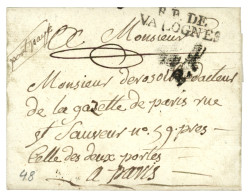 P.P. DE
VALOGNES
Monsieur
Monsieur derosoi rédacteur
de la gazette de paris rue
st Sauveur no. 59 pres
Celle des deux portes
a paris
48